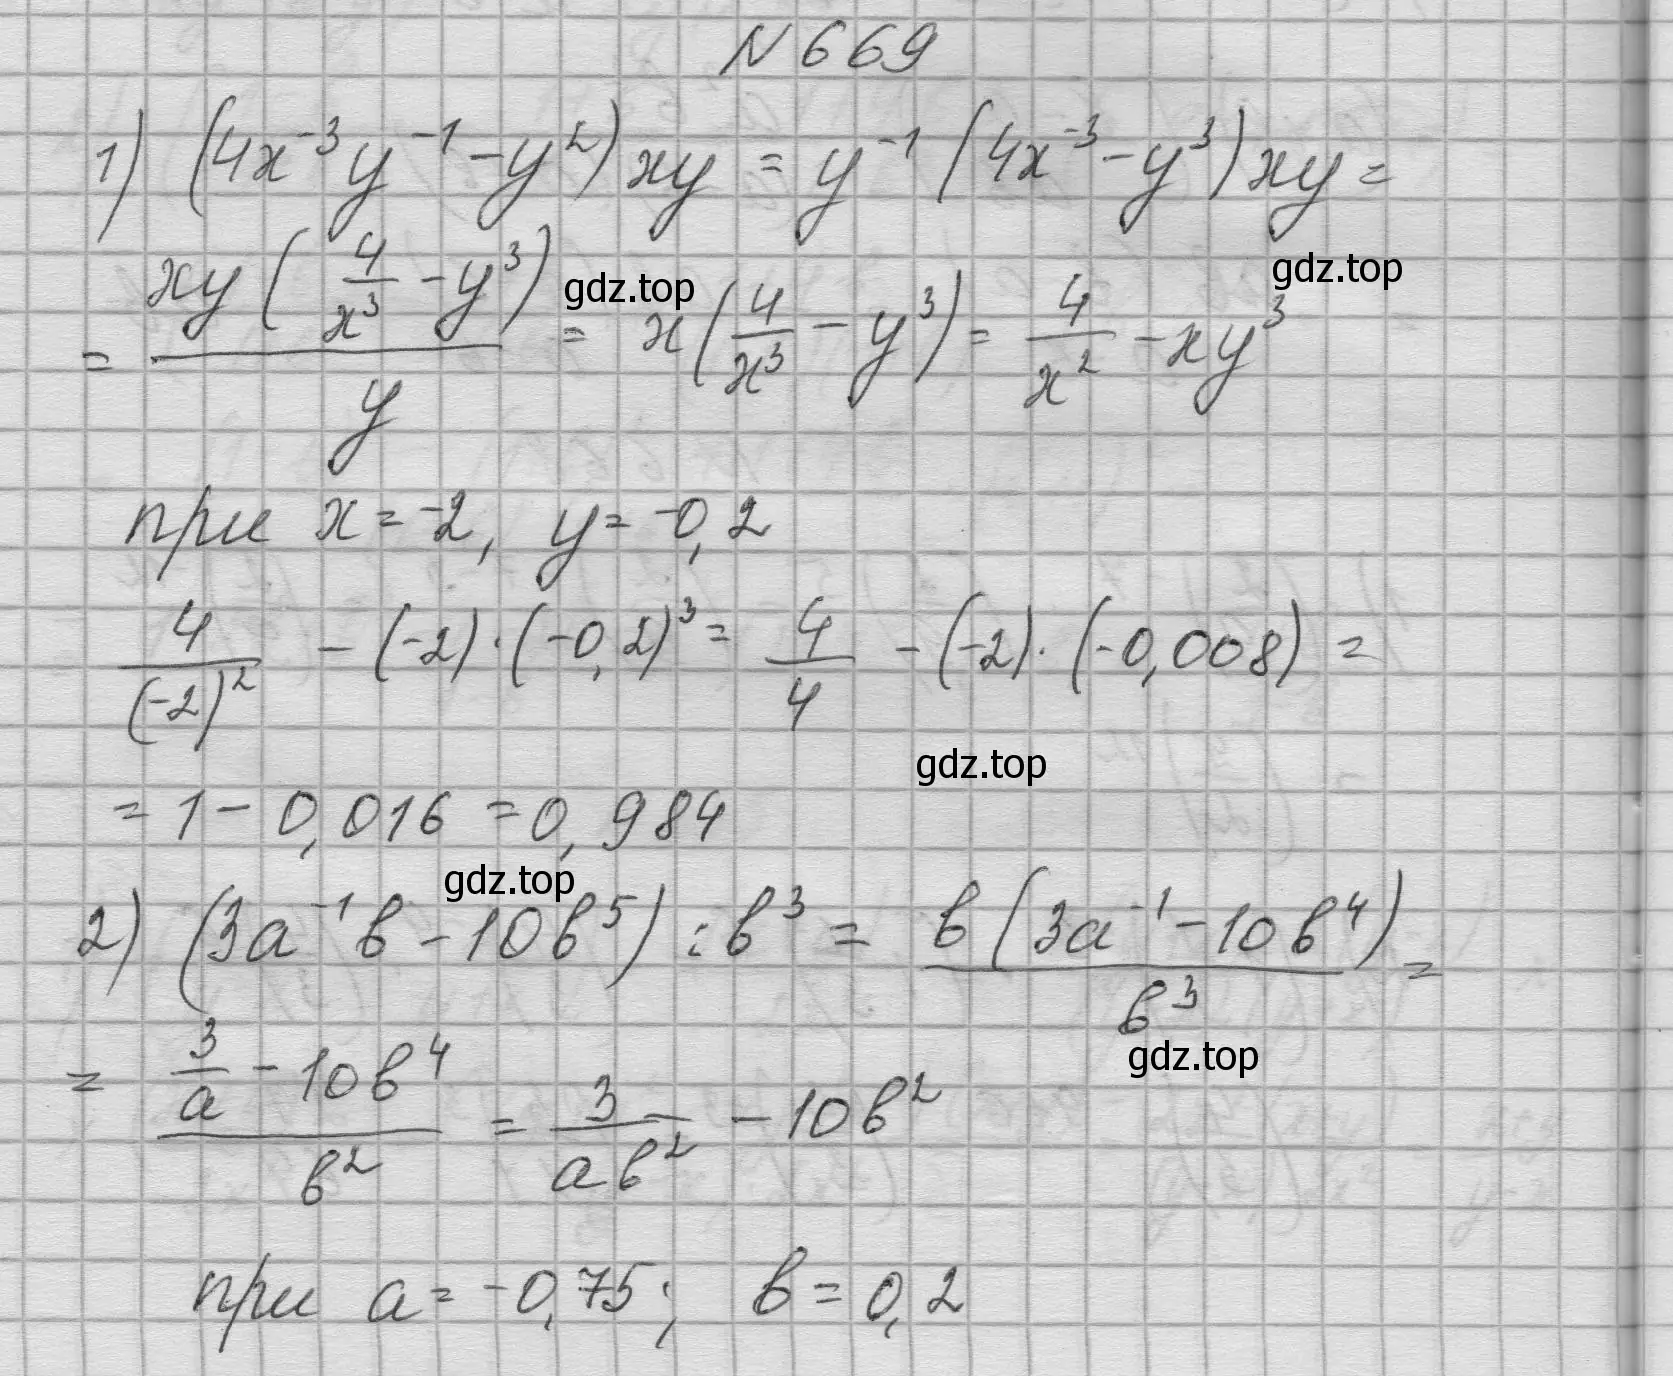 N 669
1) (4x⁻³y⁻¹ - y²) xy = y⁻¹ (4x⁻³ - y³) xy =
= xy(4/x³ - y³) / y = x(4/x³ - y³) = 4/x² - xy³
gdz.top
gdz.top
при x = -2, y = -0,2
4/(-2)² - (-2)·(-0,2)³ = 4/4 - (-2)·(-0,008) =
gdz.top
= 1 - 0,016 = 0,984
gdz.top
2) (3a⁻¹b - 10b⁵) : b³ = b(3a⁻¹ - 10b⁴) / b³ =
gdz.top
= (3/a - 10b⁴) / b² = 3/ab² - 10b²
при a = -0,75; b = 0,2